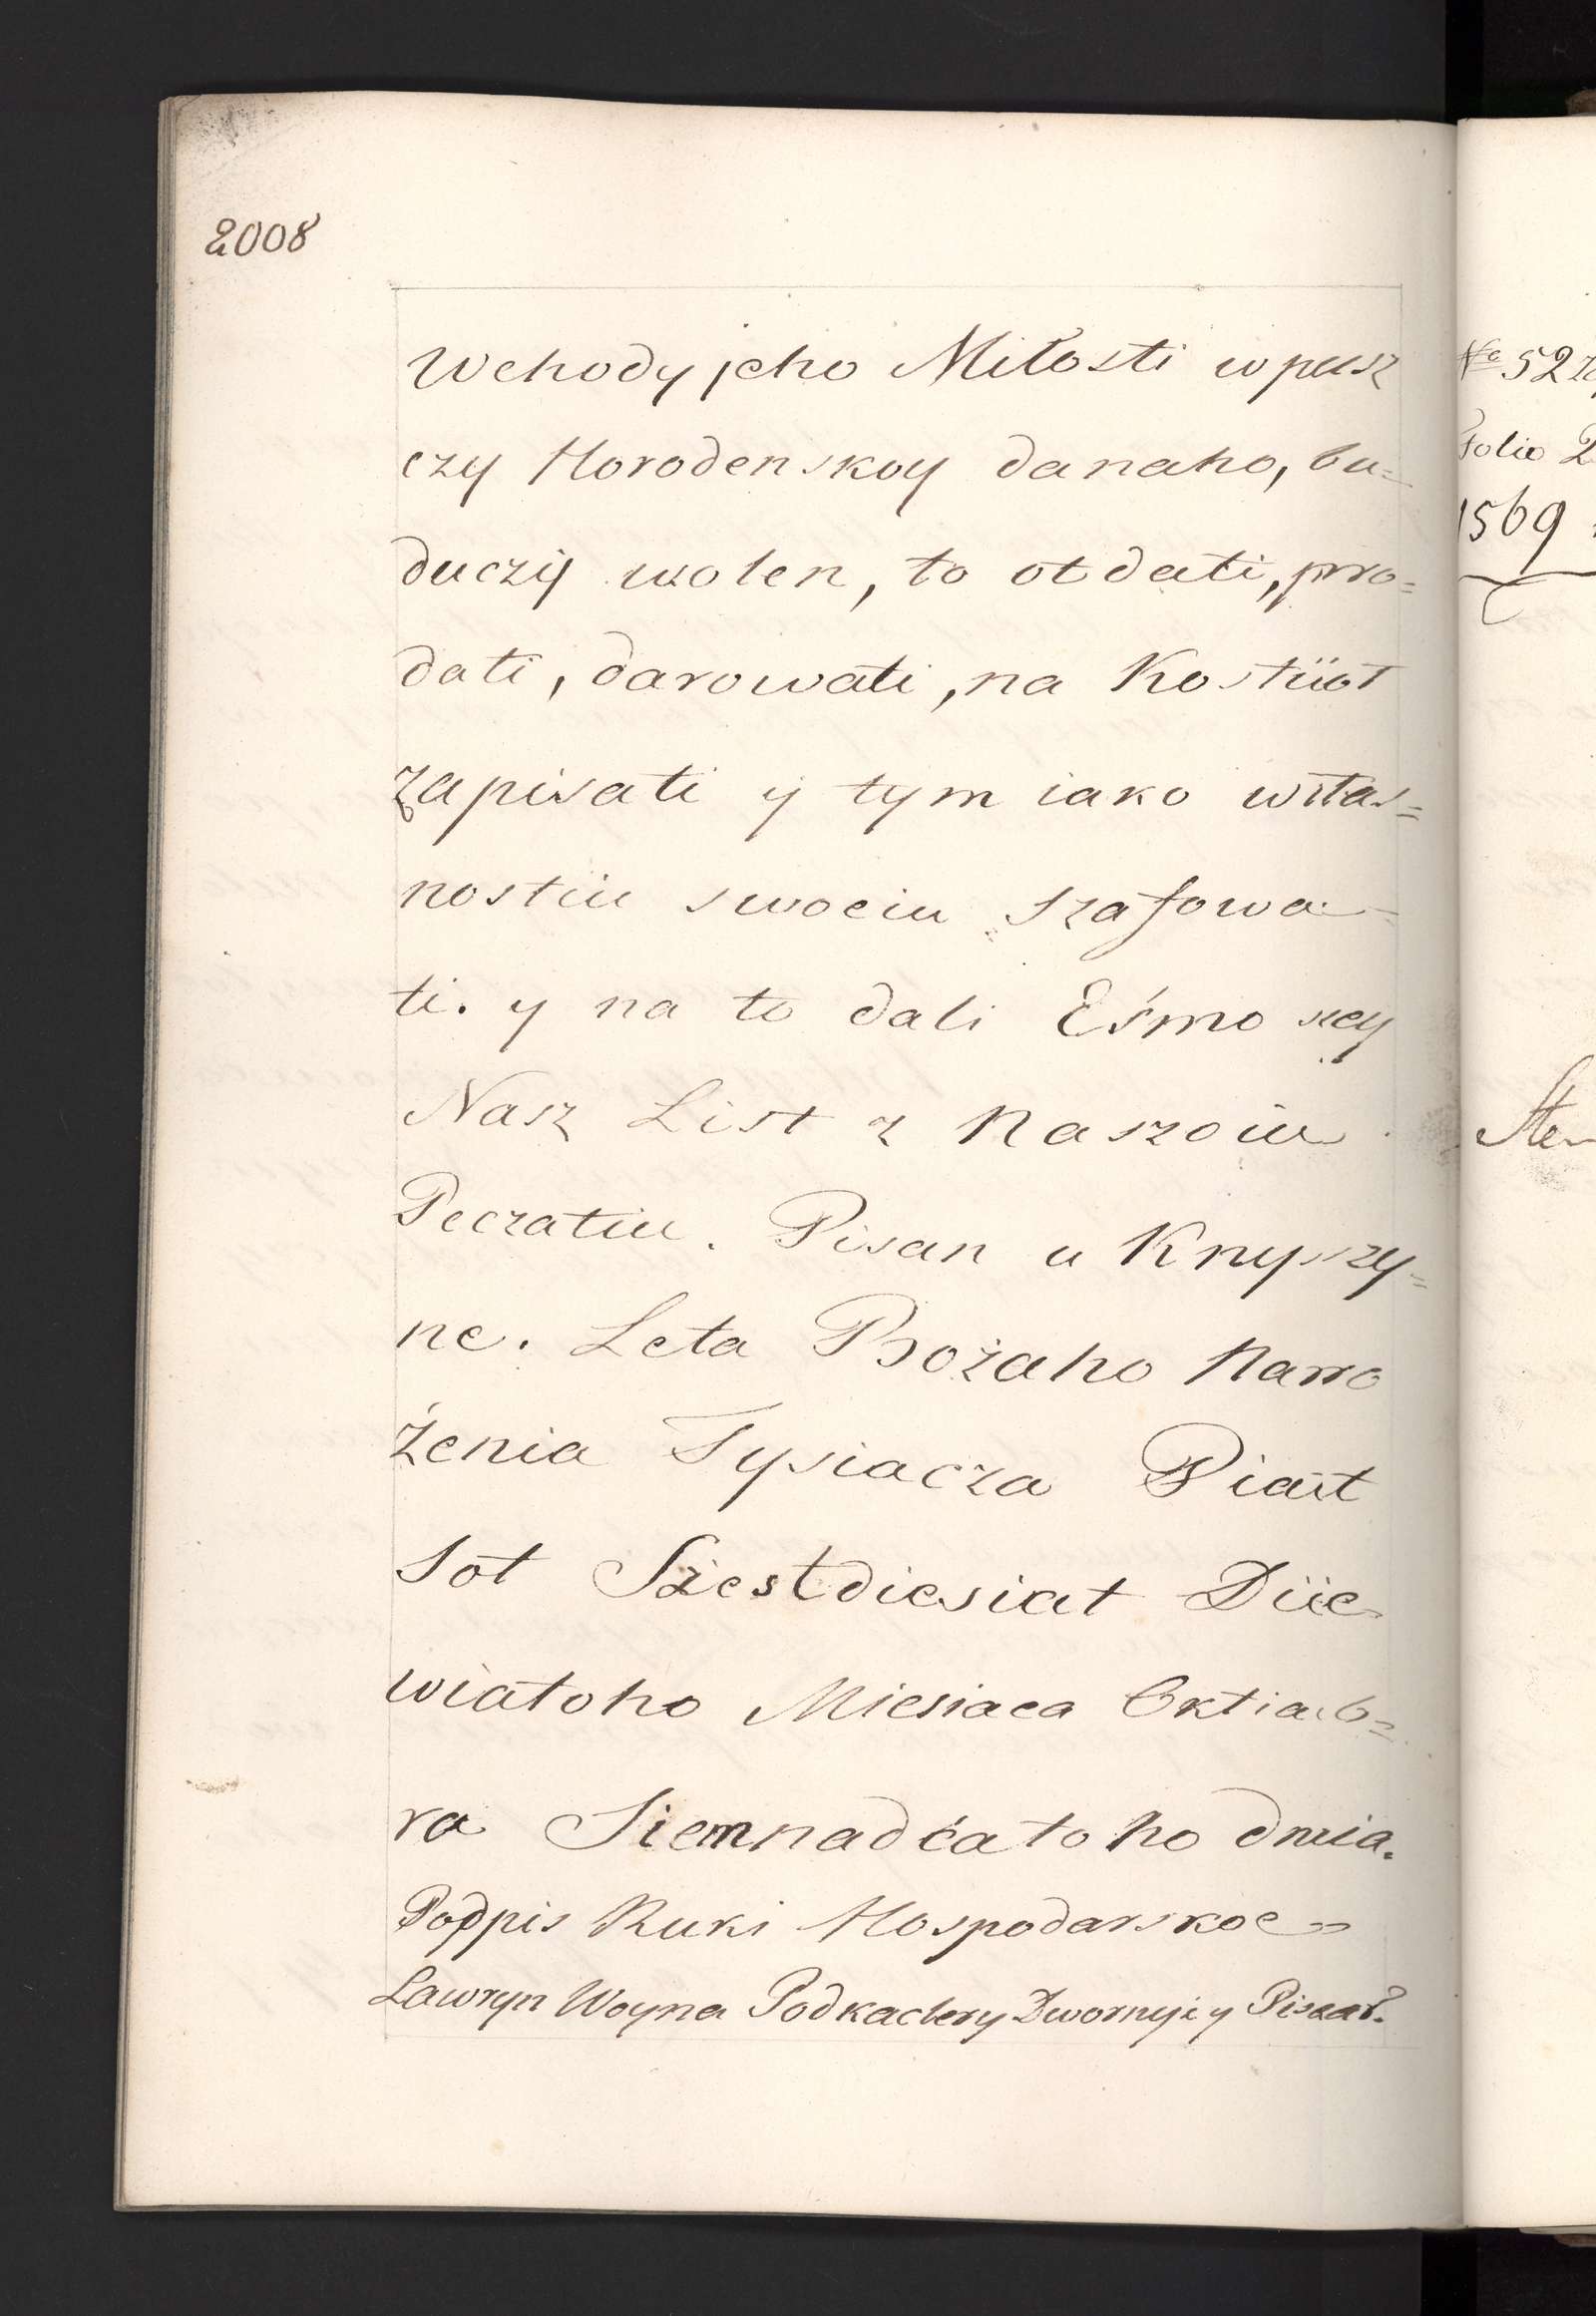 2008
Wchody jeho Miłosti w pusz
czy Horodenskoy danaho, bu=
duczÿ wolen, to otdati, pro=
dati, darowati, na Kostiioł
zapisati y tym iako własˍ=
nostiu swoeiu szafowa=
ti. y na to dali Eśmo jey
Nasz List z Naszoiu
Peczatiu. Pisan u Knyszy=
ne. Leta Bożaho Naro
żenia Tysiacza Piat
Sot Szestdiesiat Diie=
wiatoho Miesiaca Oktiab=
ra Siemnadćatoho dnia.
Podpis Ruki Hospodarskoe
Lawryn Woyna Podkaclery Dwornyi y Pisaar.
No 52
Folio 2
1569
Ste